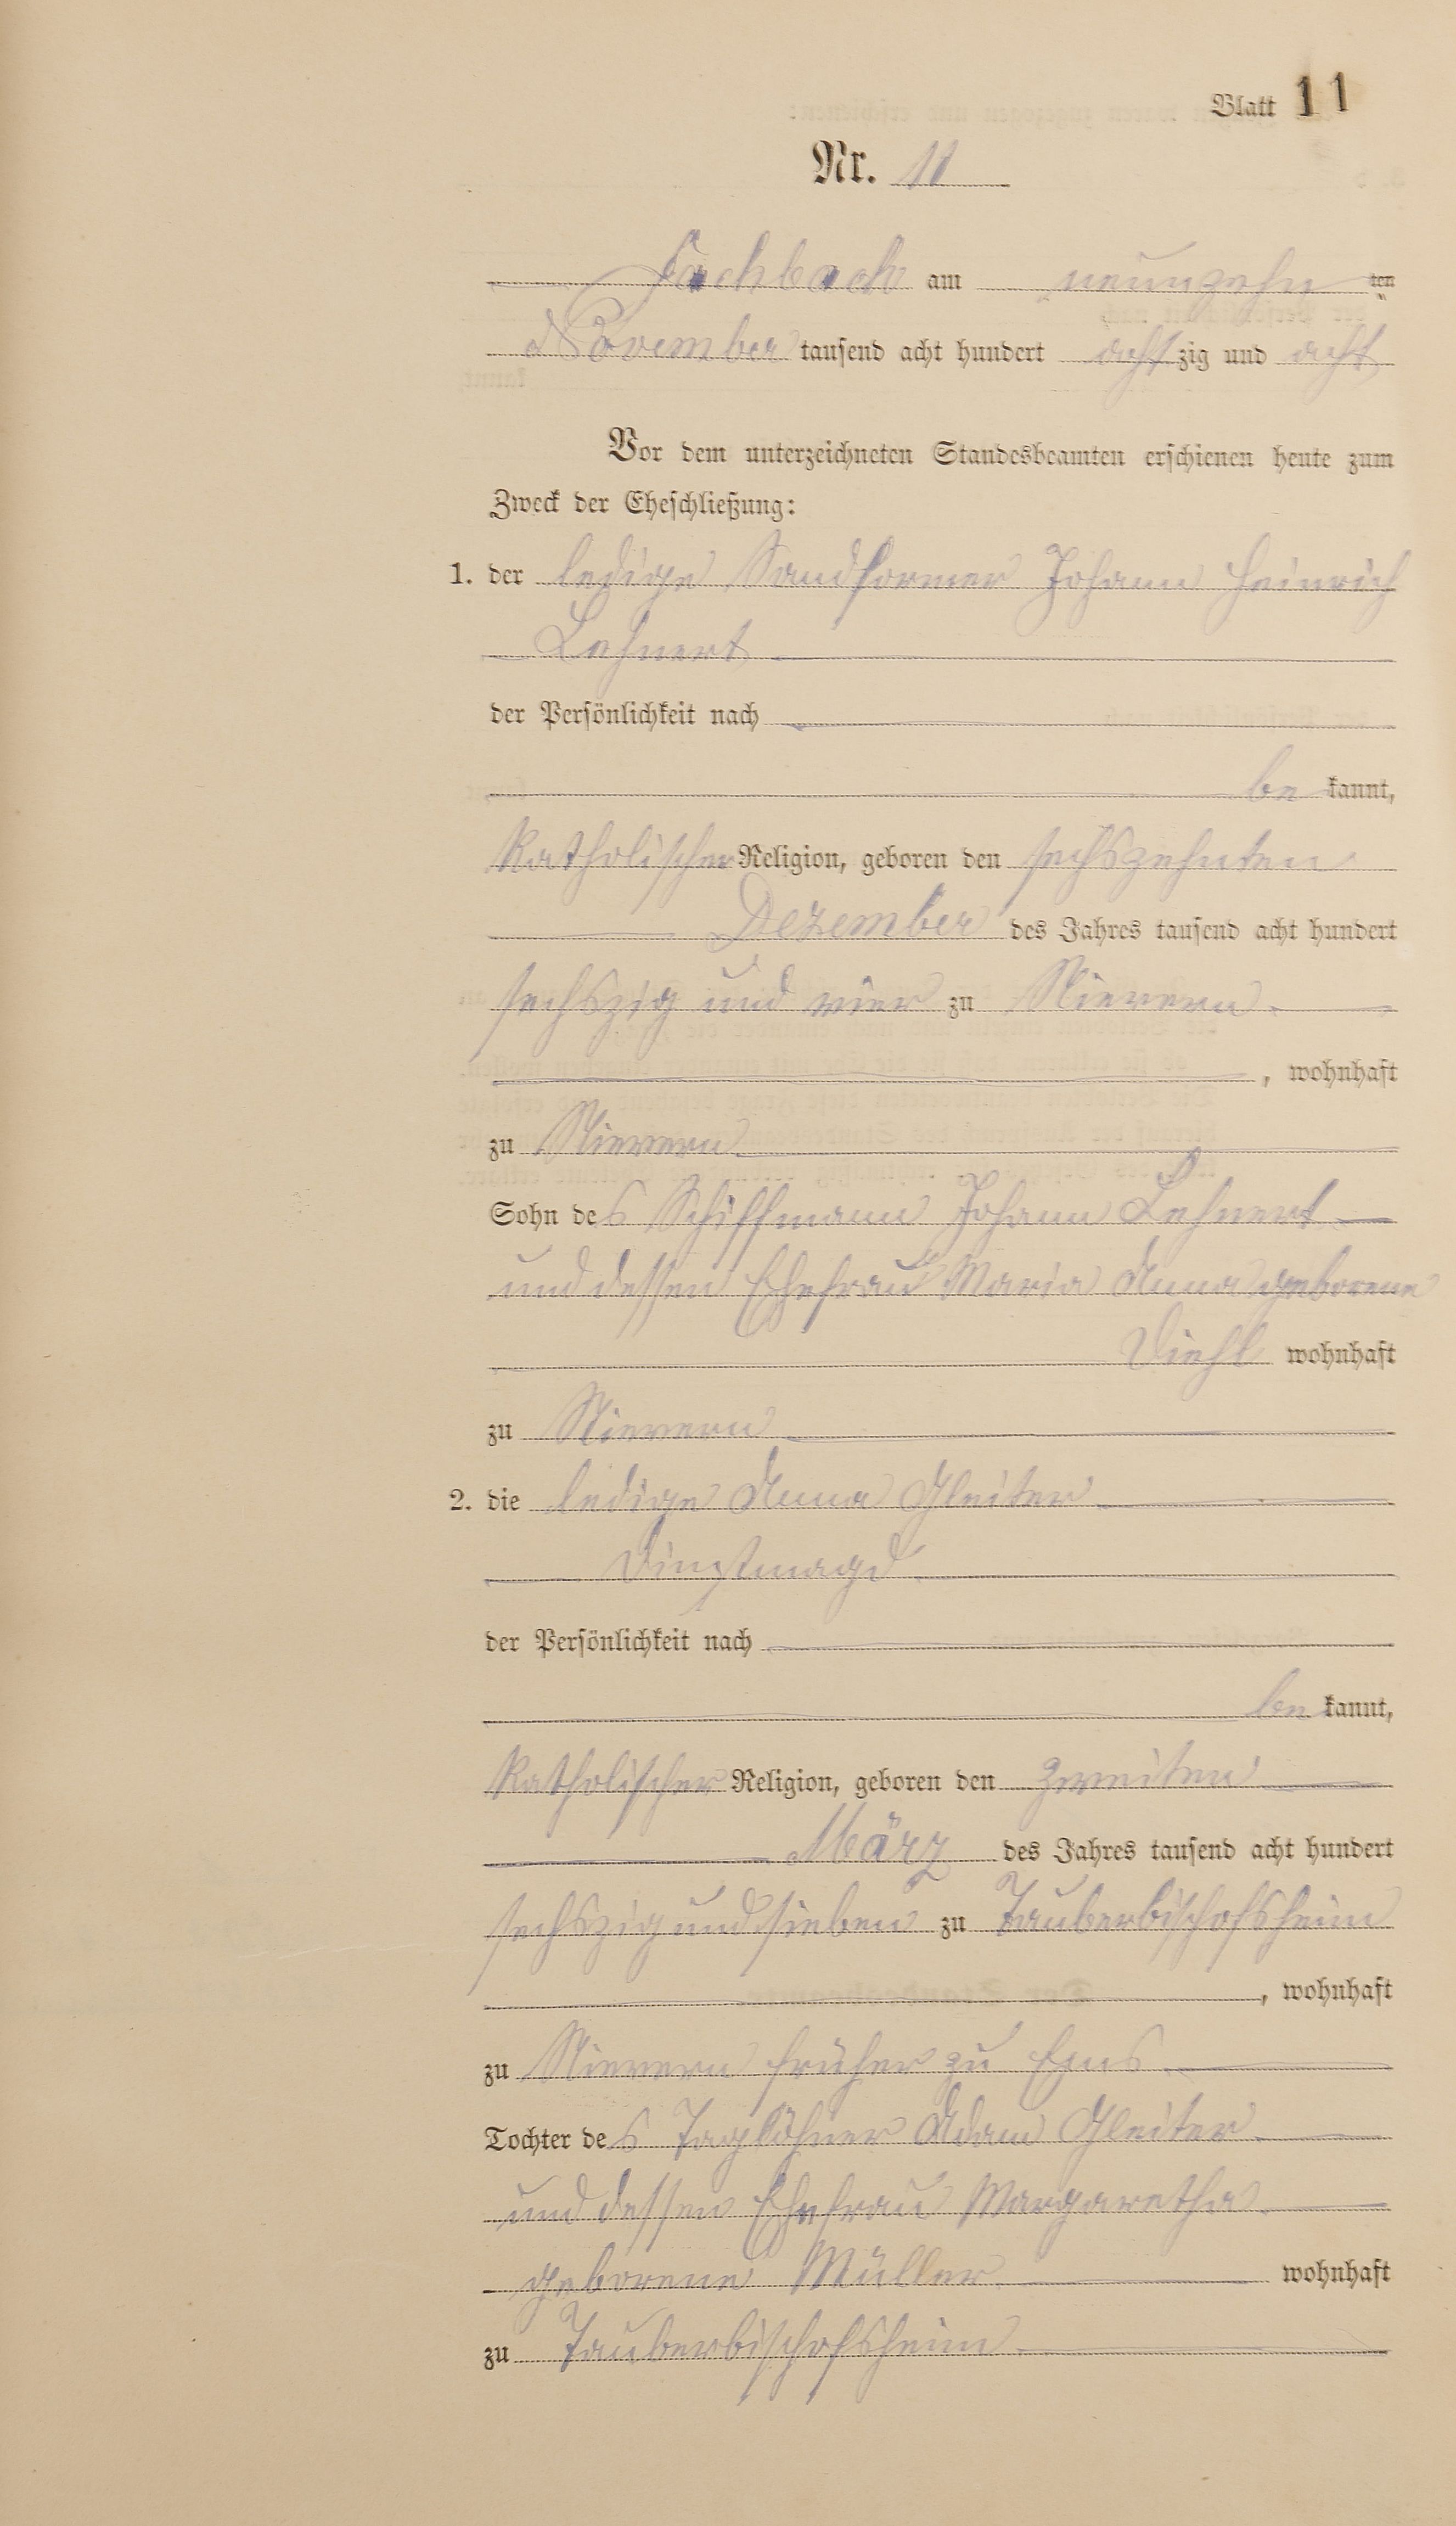 Blatt 11
Nr. 11
Fachbach am neunzehn ten
November tausend acht hundert acht zig und acht
Vor dem unterzeichneten Standesbeamten erschienen heute zum
Zweck der Eheschließung:
1. der ledige Sandformer Johann Heinrich
Lehnert
der Persönlichkeit nach
be kannt,
katholischer Religion, geboren den sechszehnten
Dezember des Jahres tausend acht hundert
sechszig und vier zu Nievern
, wohnhaft
zu Nievern
Sohn des Schiffmann Johann Lehnert
und dessen Ehefrau Maria Anna geborene
Diehl wohnhaft
zu Nievern
2. die ledige Anna Gleiter
Dinstmagd
der Persönlichkeit nach
be kannt,
katholischer Religion, geboren den zweiten
März des Jahres tausend acht hundert
sechszig und sieben zu Tauberbischofsheim
, wohnhaft
zu Nievern früher zu Ems
Tochter des Taglöhner Adam Gleiter
und dessen Ehefrau Margaretha
geborene Müller wohnhaft
zu Tauberbischofsheim